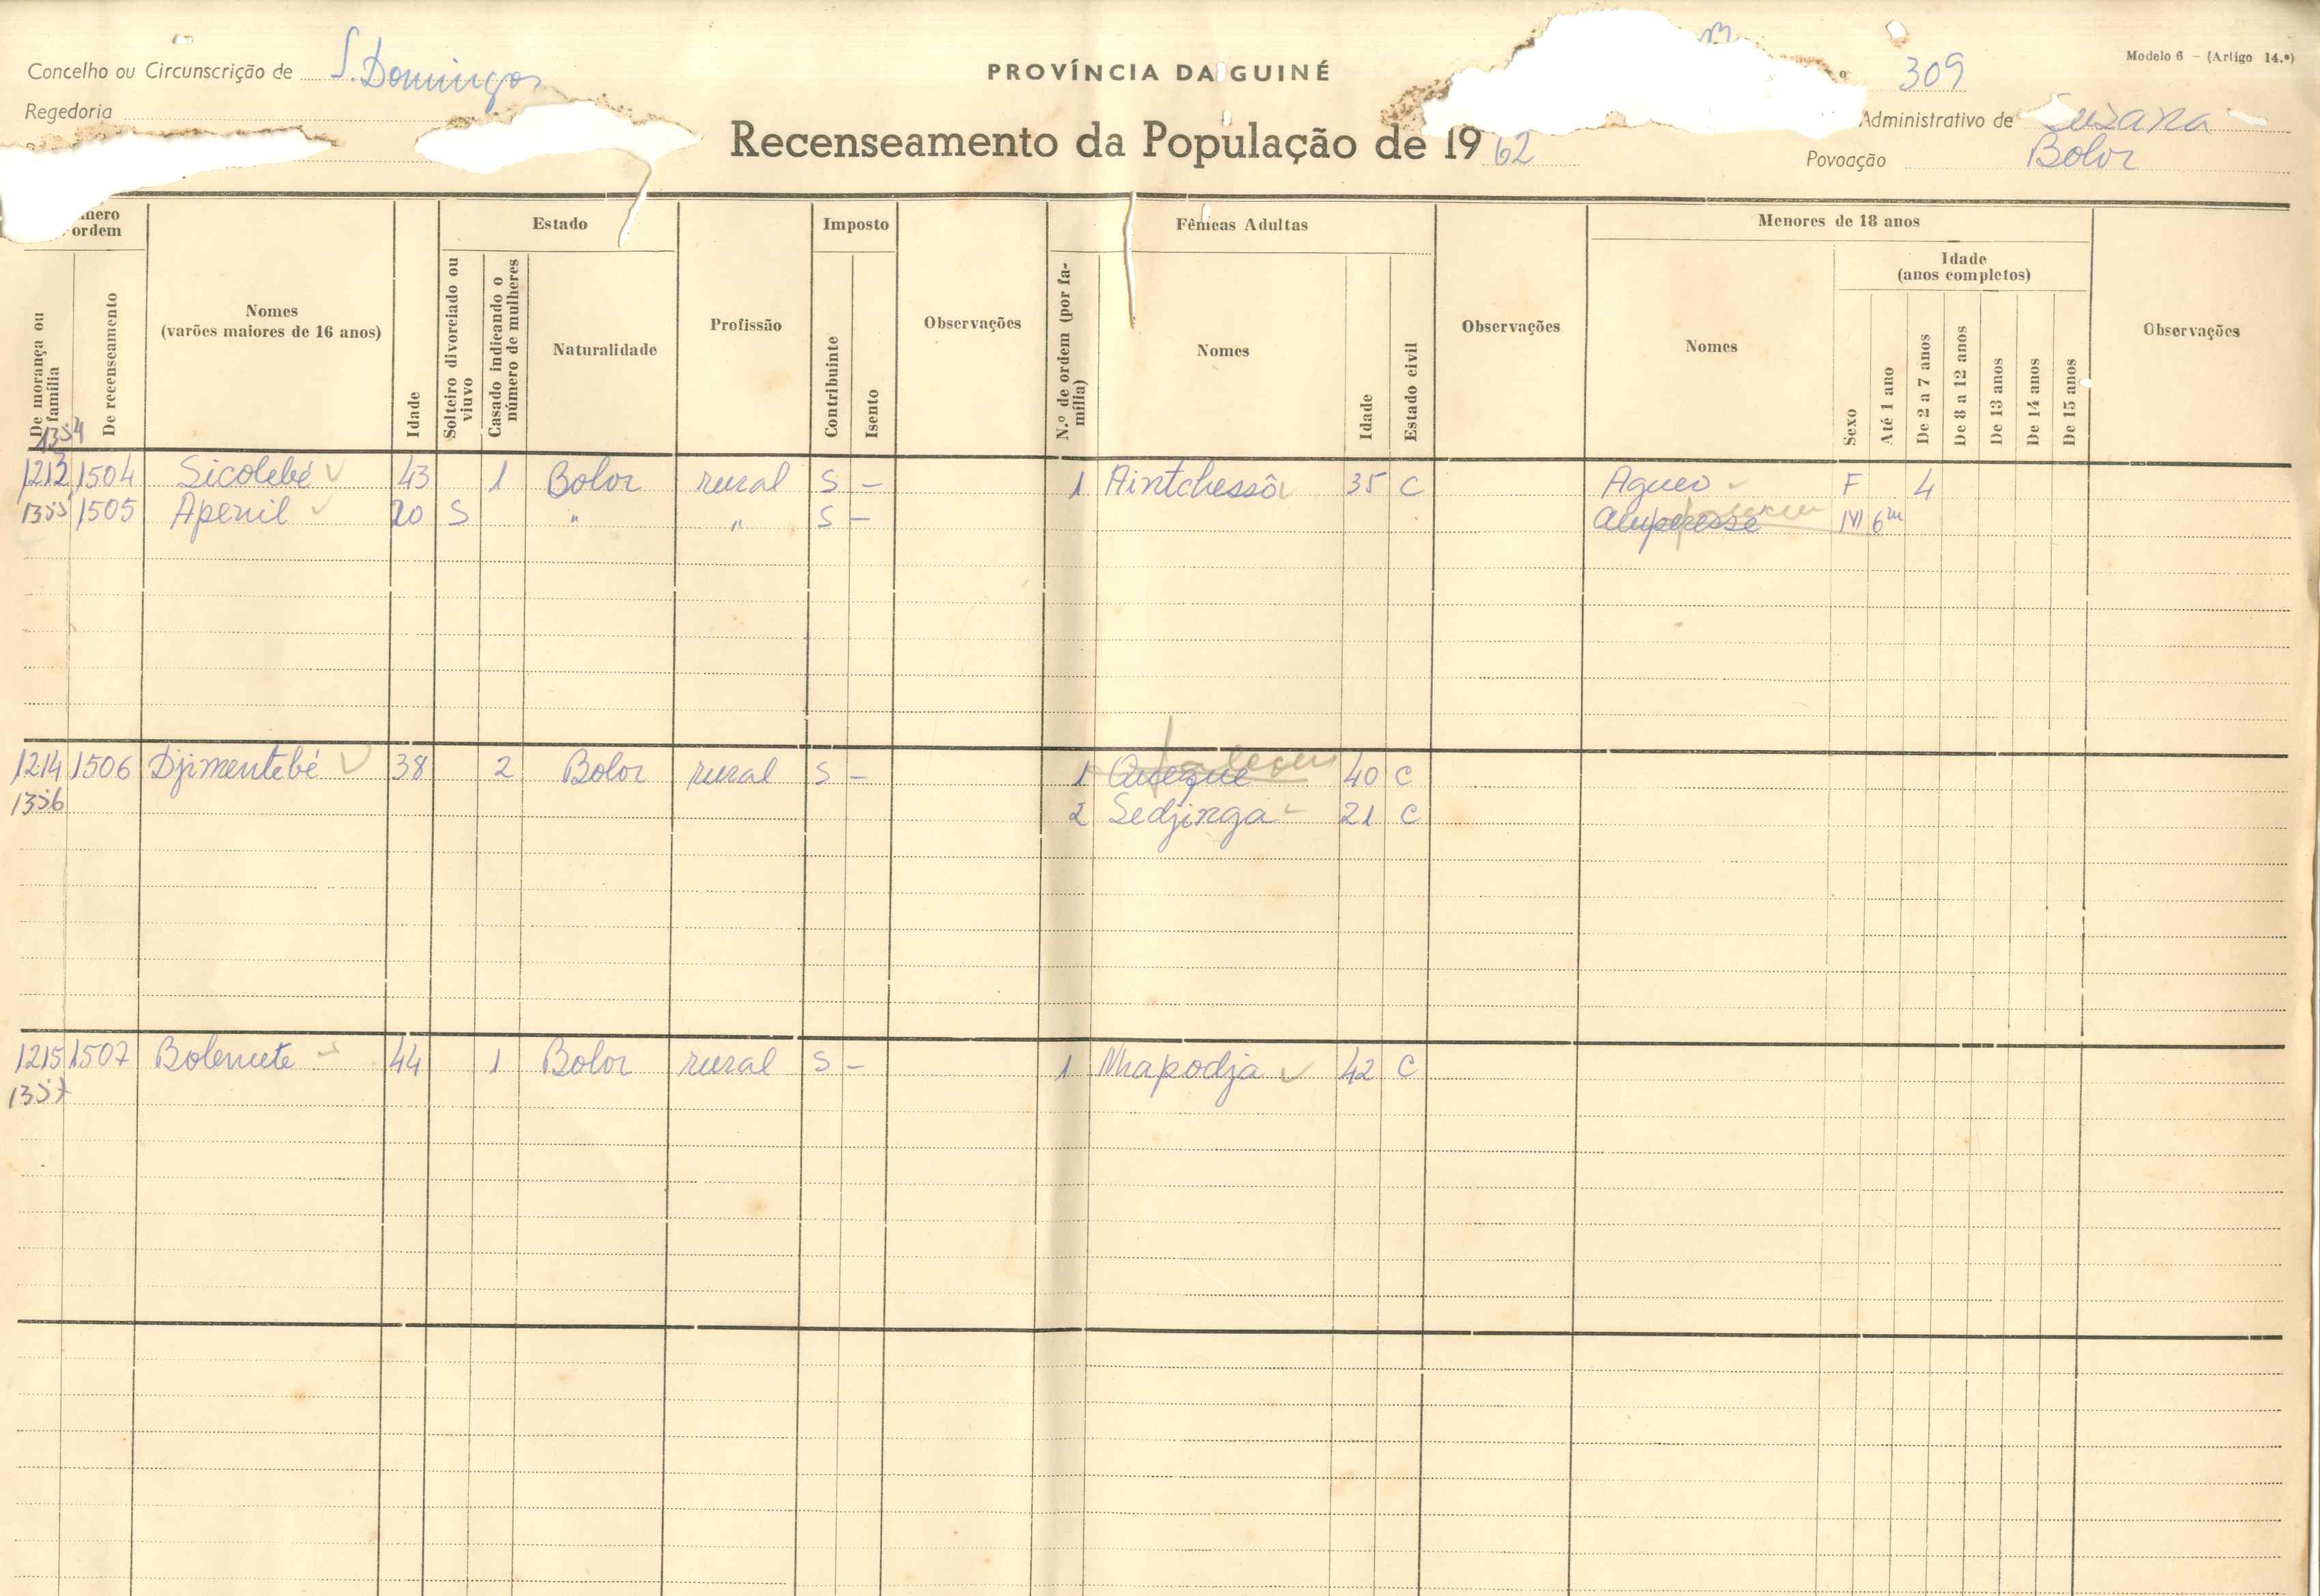 Concelho ou Circunscrição de S. Domingos
PROVÍNCIA DA GUINÉ
309
Modelo 6 - (Artigo 14.º)
Regedoria
Recenseamento da População de 1962
Administrativo de Suzana
Povoação Bolor
ordem
De morança ou família
De recenseamento
Nomes
(varões maiores de 16 anos)
Idade
Estado
Solteiro divorciado ou viuvo
Casado indicando o número de mulheres
Naturalidade
Profissão
Imposto
Contribuinte
Isento
Observações
Fêmeas Adultas
N.º de ordem (por família)
Nomes
Idade
Estado civil
Observações
Menores de 18 anos
Nomes
Idade
(anos completos)
Sexo
Até 1 ano
De 2 a 7 anos
De 8 a 12 anos
De 13 anos
De 14 anos
De 15 anos
Observações
1354
1213 1504 Sicolebé 43 1 Bolor rural S - 1 Aintchessô 35 C Agueo F 4
1355 1505 Apenil 20 S " " S - M 6m
1214 1506 Djimentebé 38 2 Bolor rural S - 1 Queque faleceu 40 C
1356 2 Sedjinga 21 C
1215 1507 Bolenute 44 1 Bolor rural S - 1 Nhapodja 42 C
1357